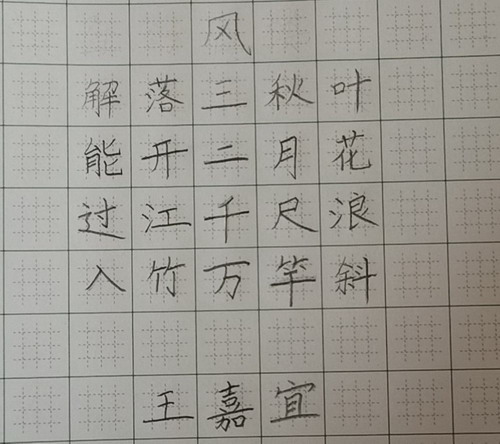 风
解落三秋叶
能开二月花
过江千尺浪
入竹万竿斜
王嘉宜